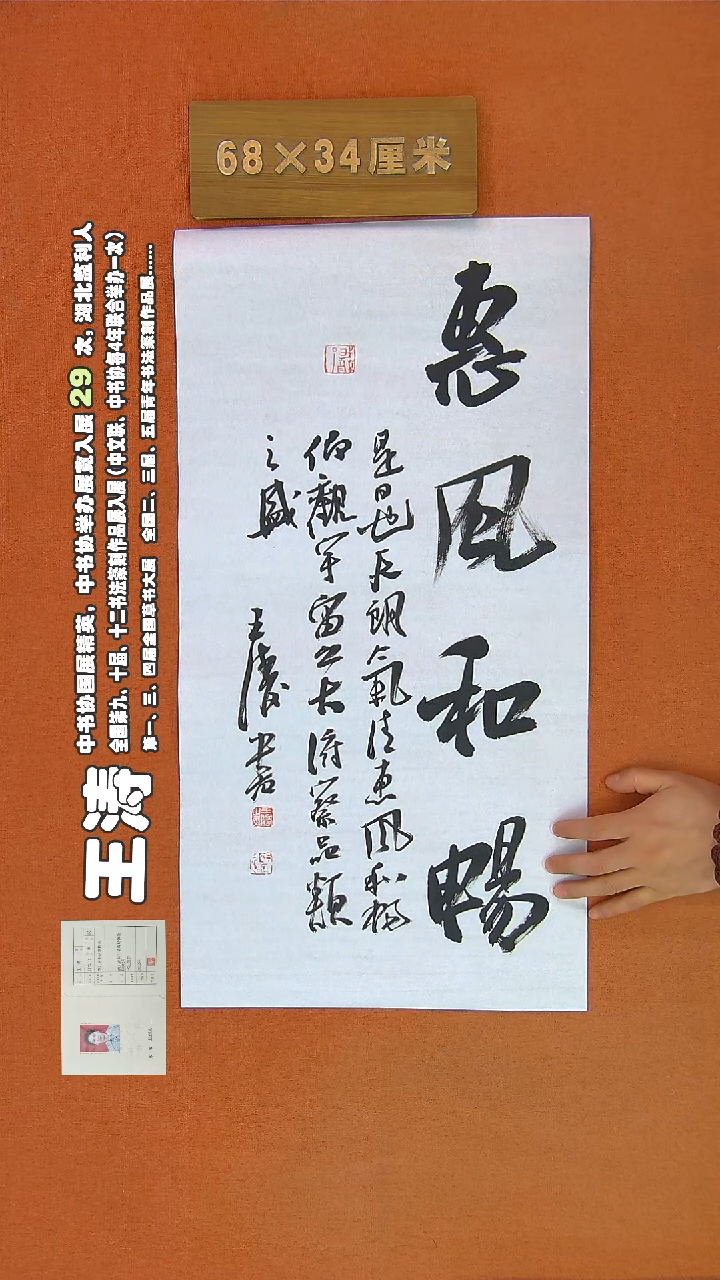 68×34厘米
惠风和暢
是日也天朗氣清惠风和暢
仰觀宇宙之大俯察品類
之盛
王濤書
王涛
中书协国展精英，中书协举办展赛入展 29 次，湖北监利人
全国第九、十届、十二书法篆刻作品展入展（中文联、中书协每4年联合举办一次）
第一、三、四届全国草书大展 全国二、三届、五届青年书法篆刻作品展......